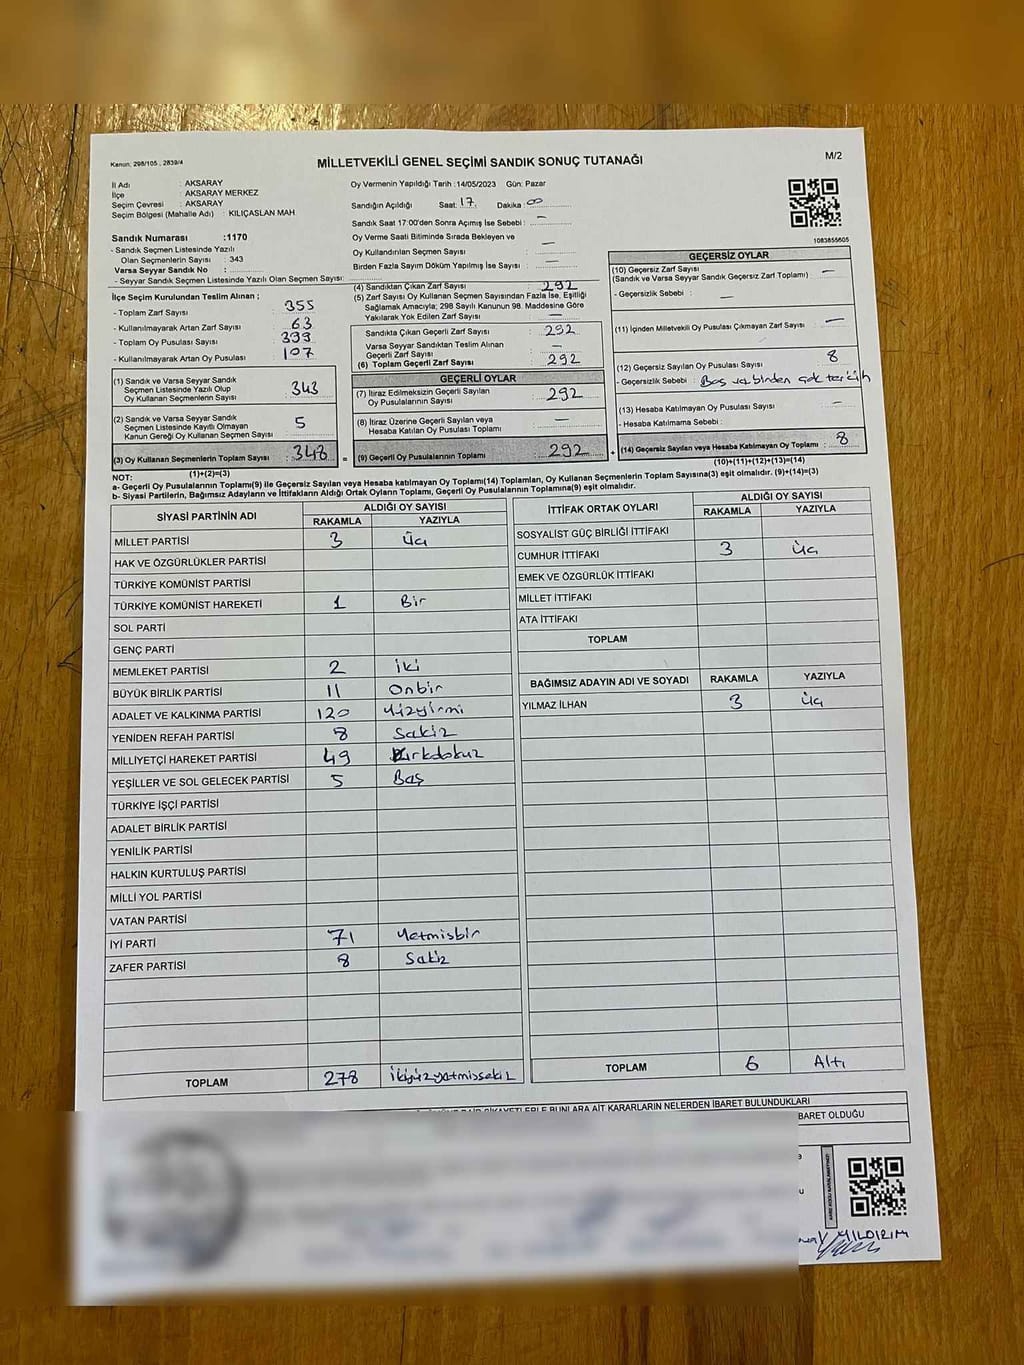 Kanun: 298/105 , 2839/4
MİLLETVEKİLİ GENEL SEÇİMİ SANDIK SONUÇ TUTANAĞI
M/2
İl Adı : AKSARAY
İlçe : AKSARAY MERKEZ
Seçim Çevresi : AKSARAY
Seçim Bölgesi (Mahalle Adı) : KILIÇASLAN MAH
Oy Vermenin Yapıldığı Tarih :14/05/2023 Gün: Pazar
Sandığın Açıldığı Saat: 17 Dakika: 00
Sandık Saat 17:00'den Sonra Açımış İse Sebebi : —
Oy Verme Saati Bitiminde Sırada Bekleyen ve
Oy Kullandırılan Seçmen Sayısı : —
Birden Fazla Sayım Döküm Yapılmış İse Sayısı : —
1083855605
Sandık Numarası :1170
- Sandık Seçmen Listesinde Yazılı
Olan Seçmenlerin Sayısı : 343
Varsa Seyyar Sandık No :
- Seyyar Sandık Seçmen Listesinde Yazılı Olan Seçmen Sayısı:
İlçe Seçim Kurulundan Teslim Alınan ;
- Toplam Zarf Sayısı : 355
- Kullanılmayarak Artan Zarf Sayısı : 63
- Toplam Oy Pusulası Sayısı : 399
- Kullanılmayarak Artan Oy Pusulası : 107
(1) Sandık ve Varsa Seyyar Sandık
Seçmen Listesinde Yazılı Olup
Oy Kullanan Seçmenlerin Sayısı : 343
(2) Sandık ve Varsa Seyyar Sandık
Seçmen Listesinde Kayıtlı Olmayan
Kanun Gereği Oy Kullanan Seçmen Sayısı : 5
(3) Oy Kullanan Seçmenlerin Toplam Sayısı : 348 =
(1)+(2)=(3)
(4) Sandıktan Çıkan Zarf Sayısı : 292
(5) Zarf Sayısı Oy Kullanan Seçmen Sayısından Fazla İse, Eşitliği
Sağlamak Amacıyla; 298 Sayılı Kanunun 98. Maddesine Göre
Yakılarak Yok Edilen Zarf Sayısı : —
Sandıkta Çıkan Geçerli Zarf Sayısı : 292
Varsa Seyyar Sandıktan Teslim Alınan
Geçerli Zarf Sayısı : —
(6) Toplam Geçerli Zarf Sayısı : 292
GEÇERLİ OYLAR
(7) İtiraz Edilmeksizin Geçerli Sayılan
Oy Pusulalarının Sayısı : 292
(8) İtiraz Üzerine Geçerli Sayılan veya
Hesaba Katılan Oy Pusulası Toplamı : —
(9) Geçerli Oy Pusulalarının Toplamı : 292 +
GEÇERSİZ OYLAR
(10) Geçersiz Zarf Sayısı : —
(Sandık ve Varsa Seyyar Sandık Geçersiz Zarf Toplamı)
- Geçersizlik Sebebi : —
(11) İçinden Milletvekili Oy Pusulası Çıkmayan Zarf Sayısı : —
(12) Geçersiz Sayılan Oy Pusulası Sayısı : 8
- Geçersizlik Sebebi : Boş ve birden çok tercih
(13) Hesaba Katılmayan Oy Pusulası Sayısı : —
- Hesaba Katılmama Sebebi :
(14) Geçersiz Sayılan veya Hesaba Katılmayan Oy Toplamı : 8
(10)+(11)+(12)+(13)=(14)
NOT:
a- Geçerli Oy Pusulalarının Toplamı(9) ile Geçersiz Sayılan veya Hesaba katılmayan Oy Toplamı(14) Toplamları, Oy Kullanan Seçmenlerin Toplam Sayısına(3) eşit olmalıdır. (9)+(14)=(3)
b- Siyasi Partilerin, Bağımsız Adayların ve İttifakların Aldığı Ortak Oyların Toplamı, Geçerli Oy Pusulalarının Toplamına(9) eşit olmalıdır.
SİYASİ PARTİNİN ADI ALDIĞI OY SAYISI
RAKAMLA YAZIYLA
MİLLET PARTİSİ 3 üç
HAK VE ÖZGÜRLÜKLER PARTİSİ
TÜRKİYE KOMÜNİST PARTİSİ
TÜRKİYE KOMÜNİST HAREKETİ 1 Bir
SOL PARTİ
GENÇ PARTİ
MEMLEKET PARTİSİ 2 iki
BÜYÜK BİRLİK PARTİSİ 11 Onbir
ADALET VE KALKINMA PARTİSİ 120 Yüzyirmi
YENİDEN REFAH PARTİSİ 8 Sekiz
MİLLİYETÇİ HAREKET PARTİSİ 49 Kırkdokuz
YEŞİLLER VE SOL GELECEK PARTİSİ 5 Beş
TÜRKİYE İŞÇİ PARTİSİ
ADALET BİRLİK PARTİSİ
YENİLİK PARTİSİ
HALKIN KURTULUŞ PARTİSİ
MİLLİ YOL PARTİSİ
VATAN PARTİSİ
İYİ PARTİ 71 Yetmisbir
ZAFER PARTİSİ 8 Sekiz
TOPLAM 278 ikiyüzyetmissekiz
İTTİFAK ORTAK OYLARI ALDIĞI OY SAYISI
RAKAMLA YAZIYLA
SOSYALİST GÜÇ BİRLİĞİ İTTİFAKI
CUMHUR İTTİFAKI 3 üç
EMEK VE ÖZGÜRLÜK İTTİFAKI
MİLLET İTTİFAKI
ATA İTTİFAKI
TOPLAM
BAĞIMSIZ ADAYIN ADI VE SOYADI RAKAMLA YAZIYLA
YILMAZ İLHAN 3 üç
TOPLAM 6 Altı
BUNLARA AİT KARARLARIN NELERDEN İBARET BULUNDUKLARI
BARET OLDUĞU
YILDIRIM